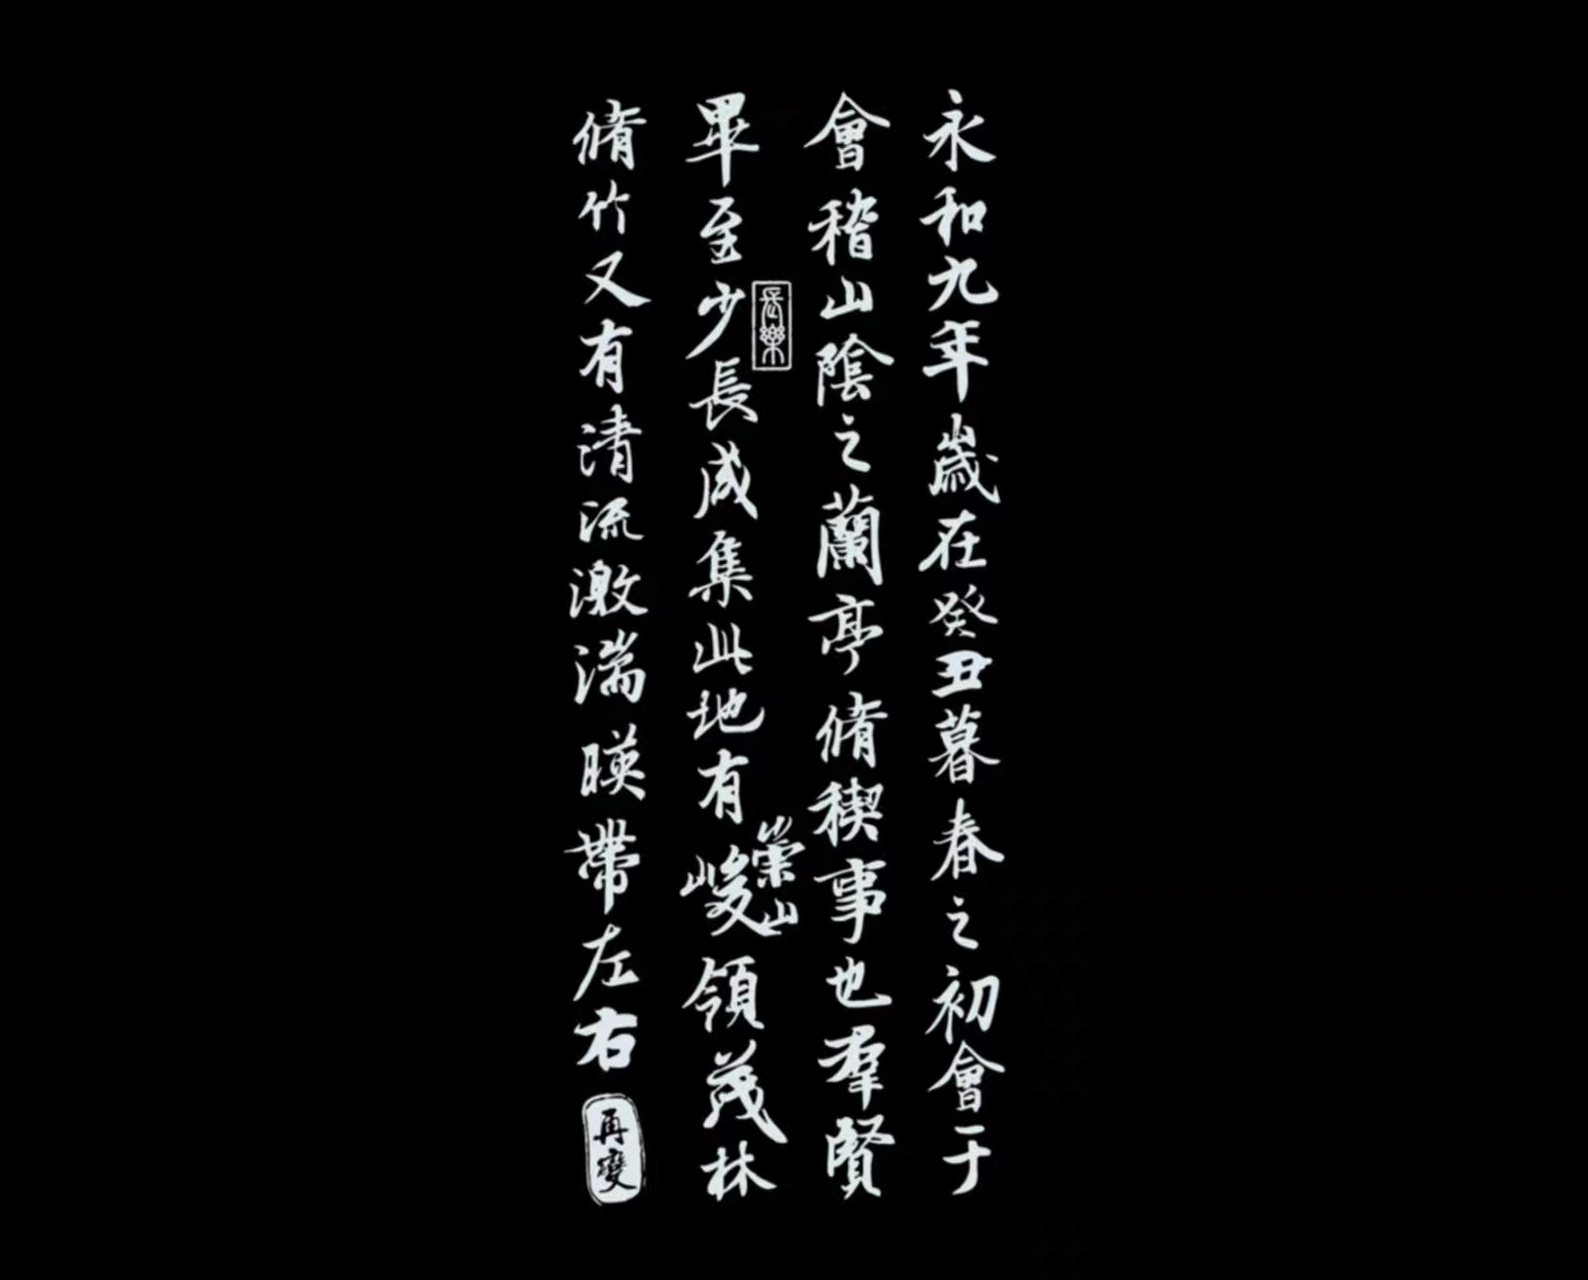 永和九年歲在癸丑暮春之初會于
會稽山陰之蘭亭脩稧事也羣賢
長樂
崇山
畢至少長咸集此地有峻領茂林
脩竹又有清流激湍暎帶左右
再變